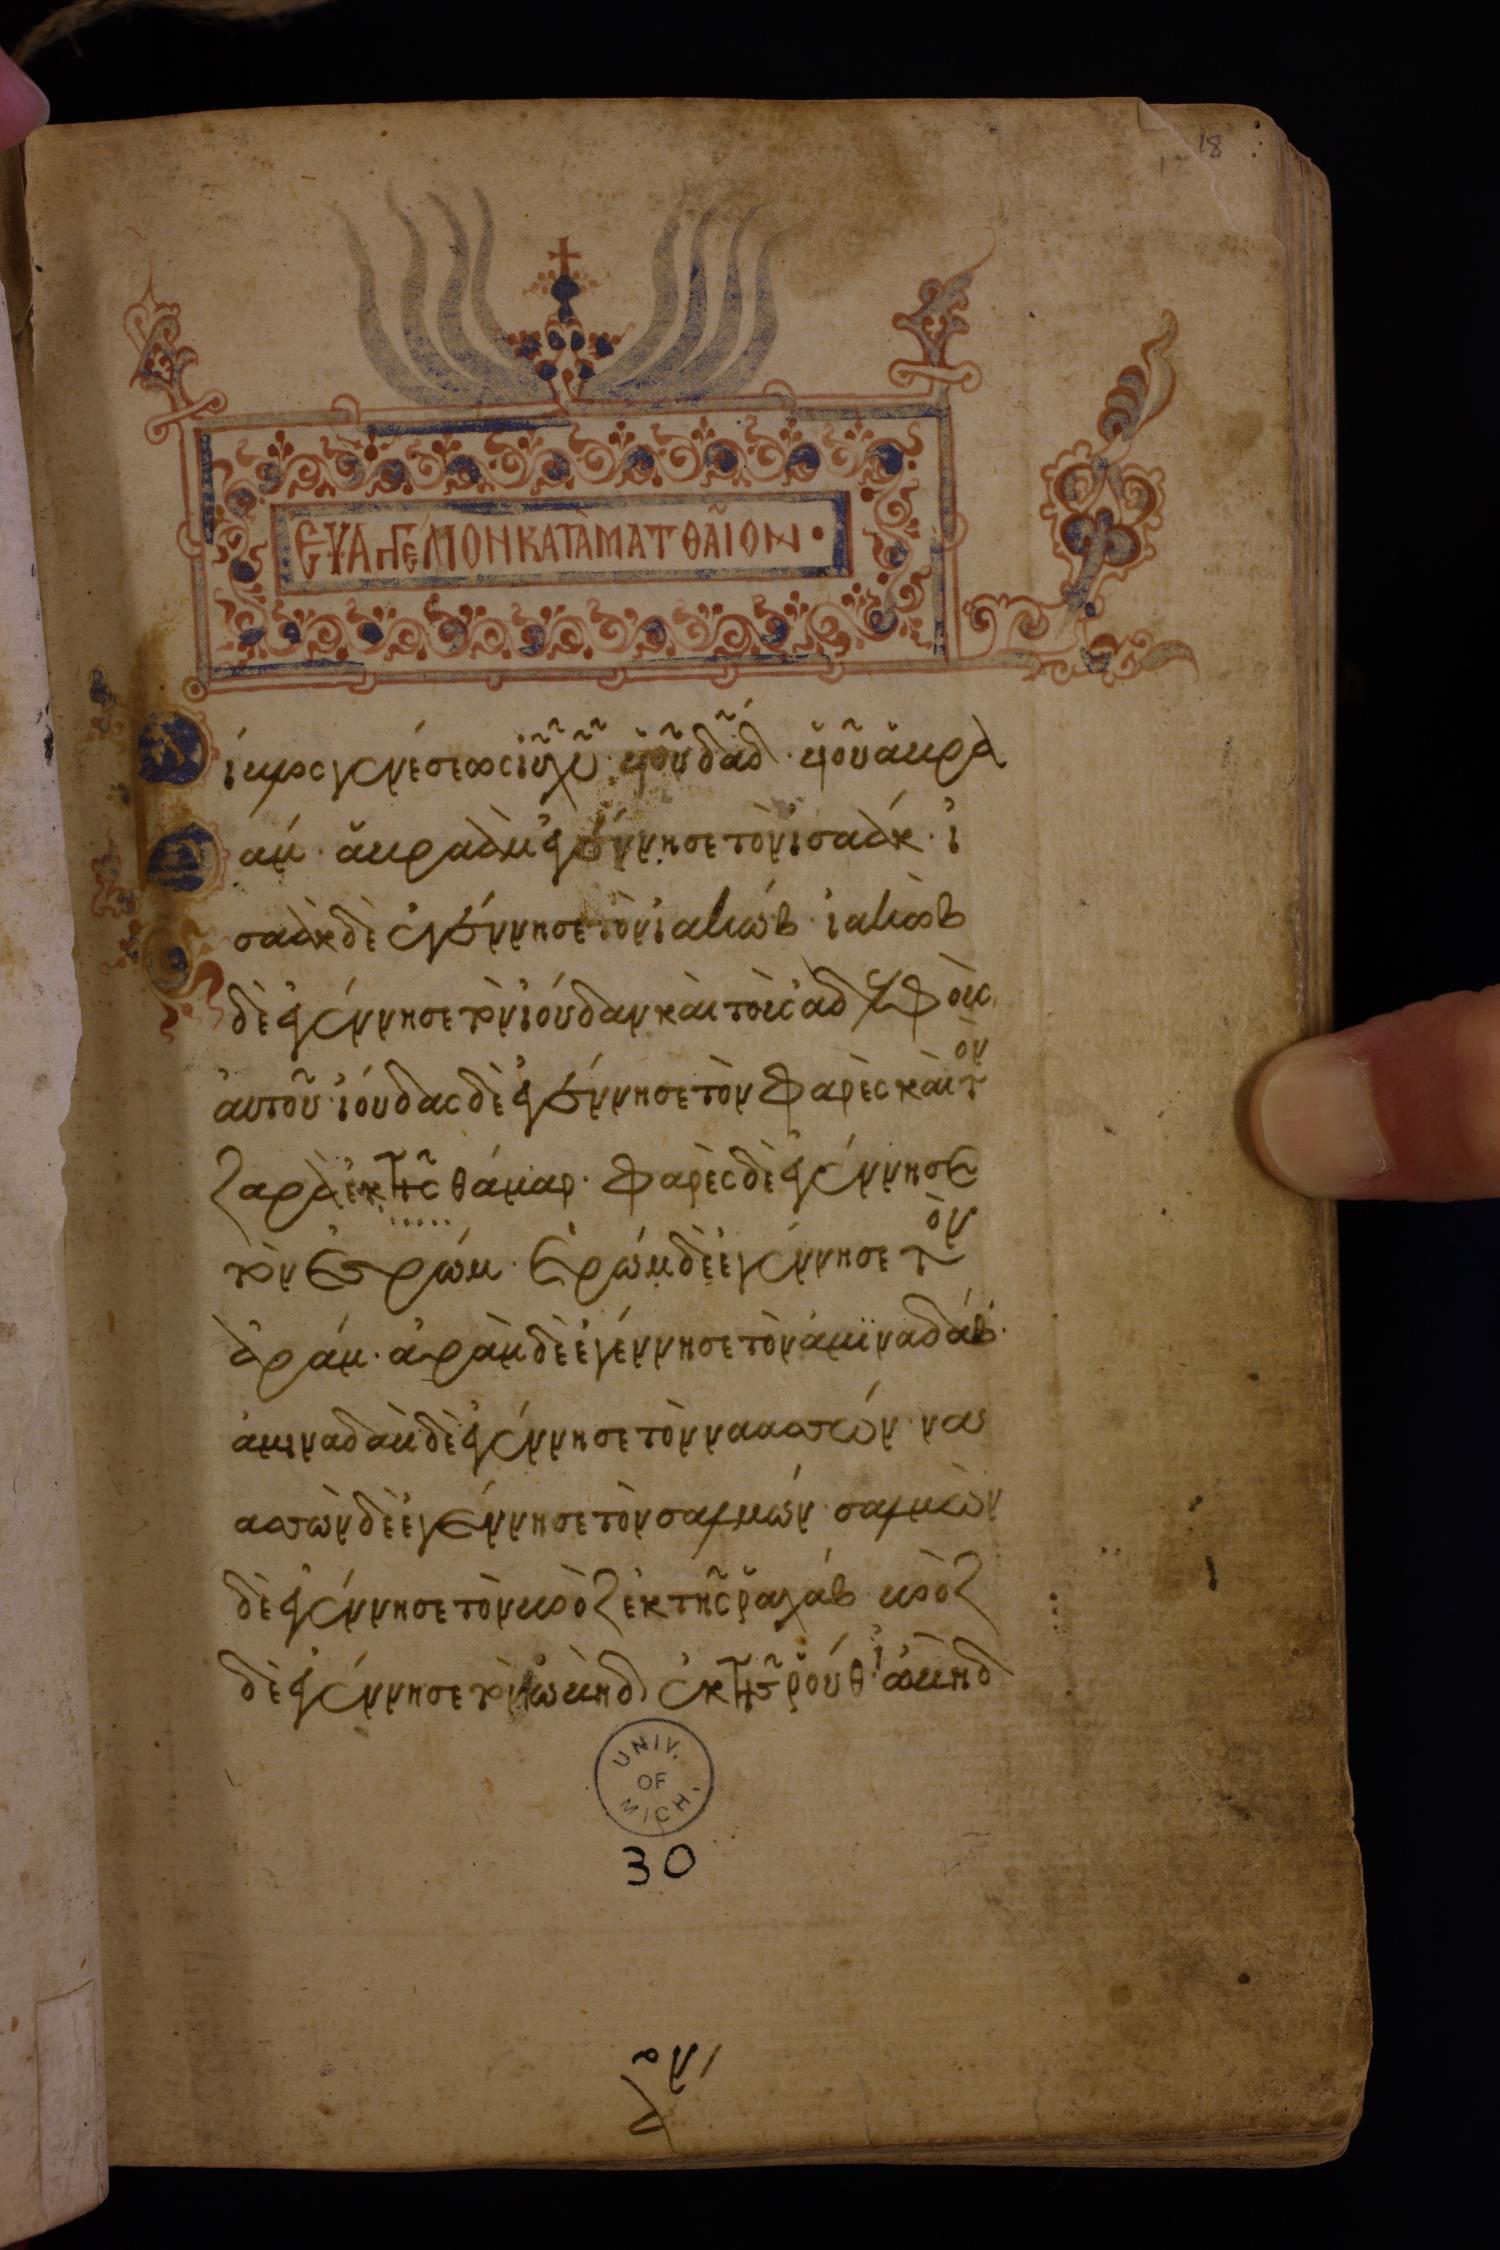 18
ΕΥΑΓΓΕΛΙΟΝ ΚΑΤᾺ ΜΑΤΘΑῖΟΝ·
Βίβλος γενέσεως ἰῦ χῦ ὑιοῦ δαδ· ὑιοῦ ἀβρα
άμ· ἀβραὰμ ἐγέννησε τὸν ἰσαάκ· ἰ
σαὰκ δὲ ἐγέννησε τὸν ἰακώβ· ἰακὼβ
δὲ ἐγέννησε τὸν ἰούδαν καὶ τοὺς ἀδελφοὺς
ἀυτοῦ· ἰούδας δὲ ἐγέννησε τὸν φαρὲς καὶ τὸν
ζαρὰ ἐκ τῆς θάμαρ· φαρὲς δὲ ἐγέννησε
τὸν ἐσρώμ· ἐσρὼμ δὲ ἐγέννησε τὸν
ἀράμ· ἀρὰμ δὲ ἐγέννησε τὸν ἀμϊναδάβ·
ἀμιναδὰμ δὲ ἐγέννησε τὸν ναασσών· να
ασσὼν δὲ ἐγέννησε τὸν σαλμών· σαλμὼν
δὲ ἐγέννησε τὸν βοὸζ ἐκ τῆς ῥαχάβ· βοὸζ
δὲ ἐγέννησε τὸν ὠβὴδ ἐκ τῆς ῥούθ· ὠβὴδ
UNIV.
OF
MICH.
30